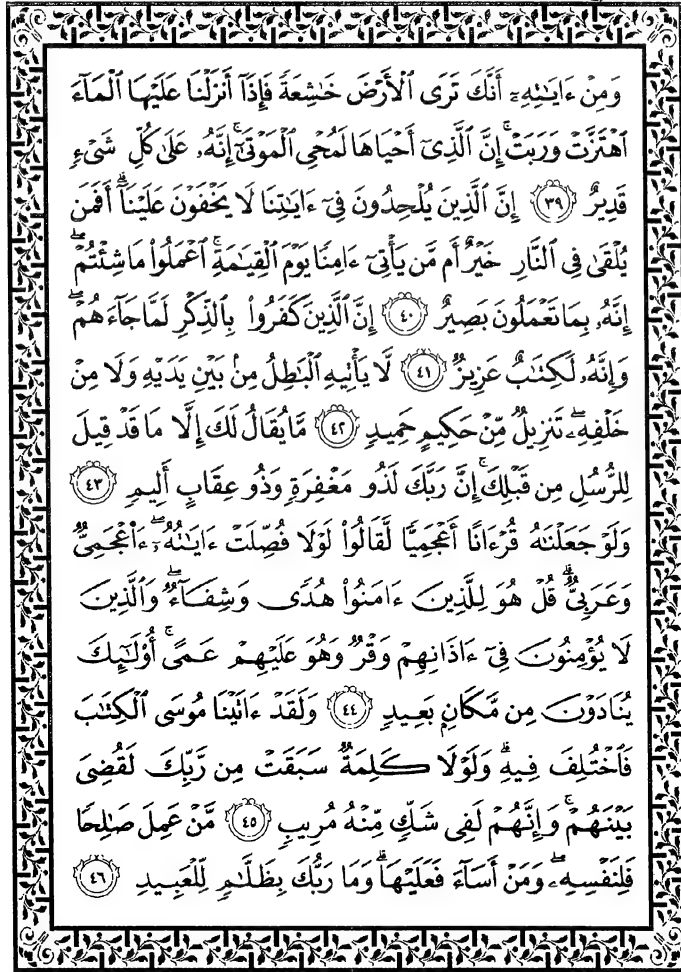 وَمِنْ ءَايَٰتِهِۦٓ أَنَّكَ تَرَى ٱلْأَرْضَ خَٰشِعَةً فَإِذَآ أَنزَلْنَا عَلَيْهَا ٱلْمَآءَ
ٱهْتَزَّتْ وَرَبَتْ ۚ إِنَّ ٱلَّذِىٓ أَحْيَاهَا لَمُحْىِ ٱلْمَوْتَىٰٓ ۚ إِنَّهُۥ عَلَىٰ كُلِّ شَىْءٍ
قَدِيرٌ ﴿٣٩﴾ إِنَّ ٱلَّذِينَ يُلْحِدُونَ فِىٓ ءَايَٰتِنَا لَا يَخْفَوْنَ عَلَيْنَآ ۗ أَفَمَن
يُلْقَىٰ فِى ٱلنَّارِ خَيْرٌ أَم مَّن يَأْتِىٓ ءَامِنًا يَوْمَ ٱلْقِيَٰمَةِ ۚ ٱعْمَلُوا۟ مَا شِئْتُمْ ۖ
إِنَّهُۥ بِمَا تَعْمَلُونَ بَصِيرٌ ﴿٤٠﴾ إِنَّ ٱلَّذِينَ كَفَرُوا۟ بِٱلذِّكْرِ لَمَّا جَآءَهُمْ ۖ
وَإِنَّهُۥ لَكِتَٰبٌ عَزِيزٌ ﴿٤١﴾ لَّا يَأْتِيهِ ٱلْبَٰطِلُ مِنۢ بَيْنِ يَدَيْهِ وَلَا مِنْ
خَلْفِهِۦ ۖ تَنزِيلٌ مِّنْ حَكِيمٍ حَمِيدٍ ﴿٤٢﴾ مَّا يُقَالُ لَكَ إِلَّا مَا قَدْ قِيلَ
لِلرُّسُلِ مِن قَبْلِكَ ۚ إِنَّ رَبَّكَ لَذُو مَغْفِرَةٍ وَذُو عِقَابٍ أَلِيمٍ ﴿٤٣﴾
وَلَوْ جَعَلْنَٰهُ قُرْءَانًا أَعْجَمِيًّا لَّقَالُوا۟ لَوْلَا فُصِّلَتْ ءَايَٰتُهُۥٓ ۖ ءَا۬عْجَمِىٌّ
وَعَرَبِىٌّ ۗ قُلْ هُوَ لِلَّذِينَ ءَامَنُوا۟ هُدًى وَشِفَآءٌ ۖ وَٱلَّذِينَ
لَا يُؤْمِنُونَ فِىٓ ءَاذَانِهِمْ وَقْرٌ وَهُوَ عَلَيْهِمْ عَمًى ۚ أُو۟لَٰٓئِكَ
يُنَادَوْنَ مِن مَّكَانٍۭ بَعِيدٍ ﴿٤٤﴾ وَلَقَدْ ءَاتَيْنَا مُوسَى ٱلْكِتَٰبَ
فَٱخْتُلِفَ فِيهِ ۗ وَلَوْلَا كَلِمَةٌ سَبَقَتْ مِن رَّبِّكَ لَقُضِىَ
بَيْنَهُمْ ۚ وَإِنَّهُمْ لَفِى شَكٍّ مِّنْهُ مُرِيبٍ ﴿٤٥﴾ مَّنْ عَمِلَ صَٰلِحًا
فَلِنَفْسِهِۦ ۖ وَمَنْ أَسَآءَ فَعَلَيْهَا ۗ وَمَا رَبُّكَ بِظَلَّٰمٍ لِّلْعَبِيدِ ﴿٤٦﴾